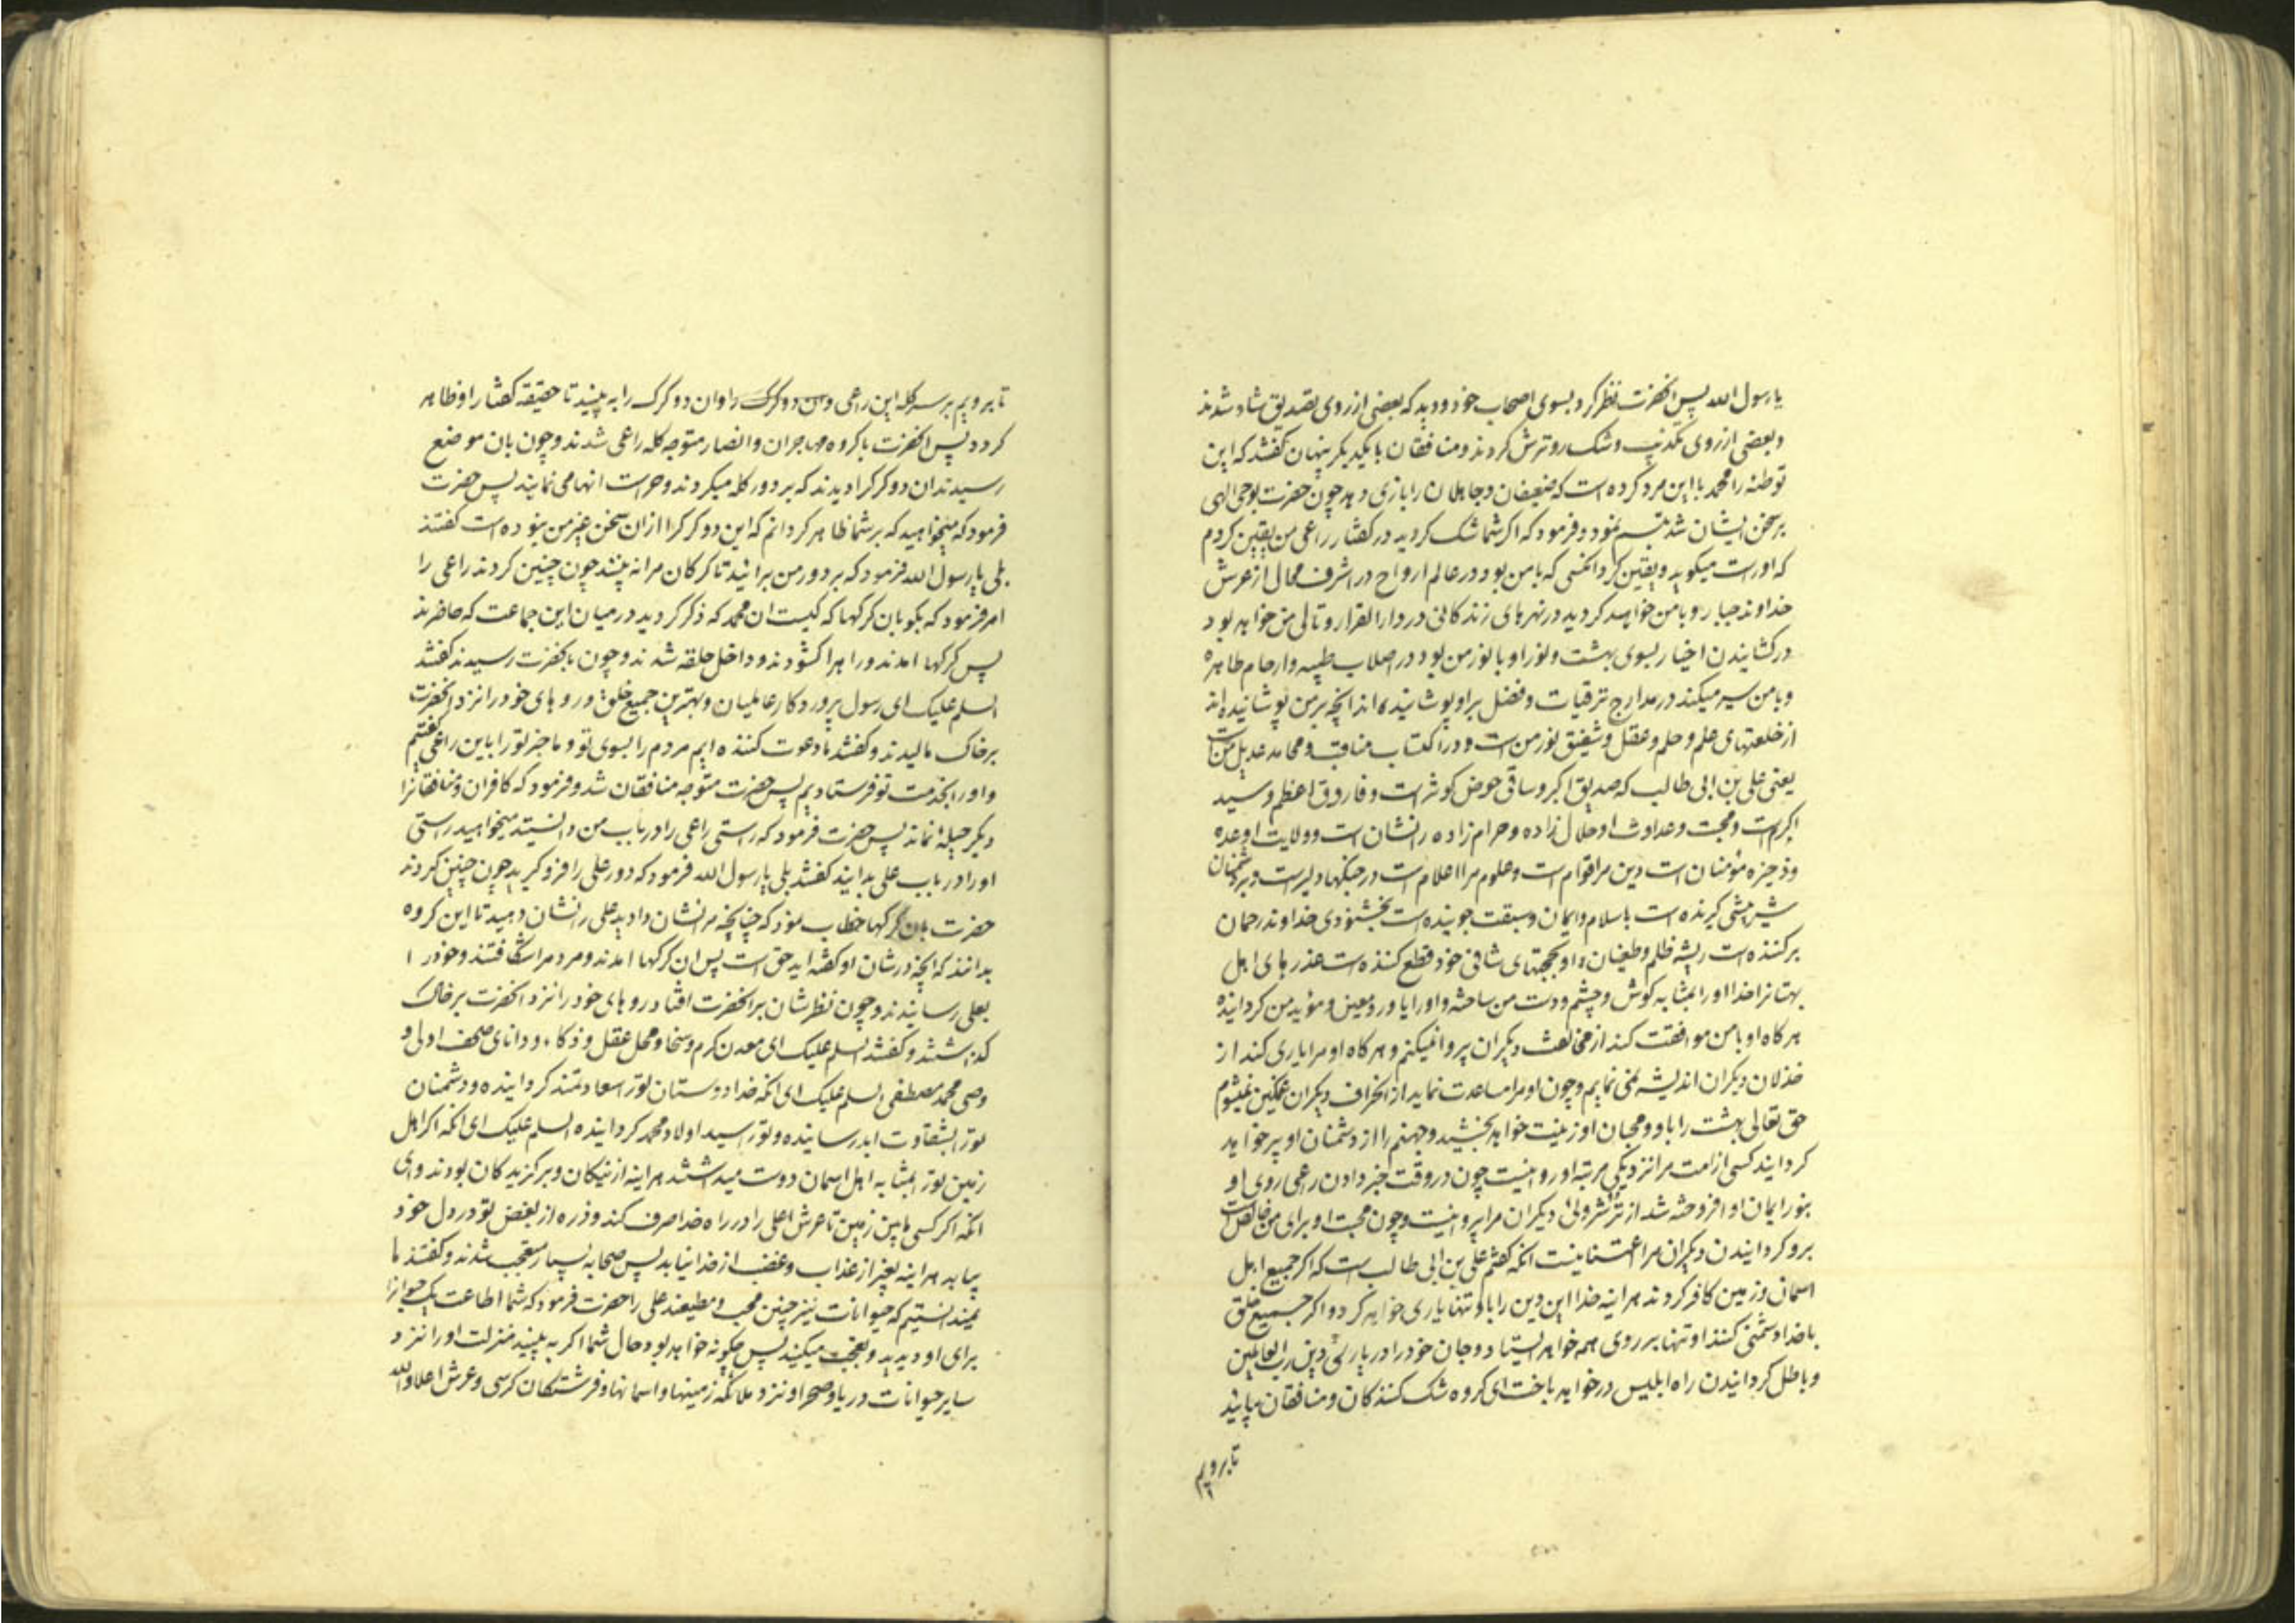 یا رسول الله پس انحضرت نظر کرد بسوی اصحاب خود و دید که بعضی از روی تصدیق شاد شدند
و بعضی از روی تکذیب و شک رو ترش کردند و منافقان با یکدیکر پنهان کفتند که این
توطئه را محمد با این مرد کرده است که ضعیفان و جاهلان را بازی دهد چون حضرت بوحی الهی
بر سخن ایشان شد تبسم نمود و فرمود که اکر شما شک کردید در کفتار راعی من یقین کردم
که او راست میکوید و یقین کرد انکسی که با من بود در عالم ارواح در اشرف محال از عرش
خداوند جبار و با من خواهد کردید در نهرهای زندکانی در دار القرار و تالی من خواهد بود
در کشانیدن اخیار بسوی بهشت و نور او با نور من بود در اصلاب طیبه و ارحام طاهره
و با من سیر میکند در مدارج ترقیات و فضل بر او پوشانیده اند انچه بر من پوشانیده اند
از خلعتهای علم و حلم و عقل و شفیق نور من است و در اکتساب مناقب و محامد عدیل من است
یعنی علی بن ابی طالب که صدیق اکبر و ساقی حوض کوثر است و فاروق اعظم و سید
اکرم است و محبت و عداوت او حلال زاده و حرام زاده را نشان است و ولایت او عده
و ذخیره مؤمنان است دین مرا قوام است و علوم مرا اعلام است در جنکها دلیر است و بر دشمنان
شیر پیشی کیرنده است باسلام و ایمان و سبقت جوینده است بخشنودی خداوند رحمان
برکننده است ریشه ظلم و طغیان و او بحجتهای شافی خود قطع کننده است عذرهای اهل
بهتانرا خدا او را بمثابه کوش و چشم و دست من ساخته و او را یاور و معین و مؤید من کردانیده
هرکاه او با من موافقت کند از مخالفت دیکران پروا نمیکنم و هرکاه او مرا یاری کند از
خذلان دیکران اندیشه نمی نمایم و چون او مرا مساعدت نماید از انحراف دیکران غمکین نمیشوم
حق تعالی بهشت را باو و محبان او زینت خواهد بخشید و جهنم را از دشمنان او پر خواهد
کردانید کسی از امت مرا نزدیکی مرتبه او روا نیست چون در وقت خبر دادن راعی روی او
بنور ایمان او افروخته شد از ترشروئی دیکران مرا پروا نیست و چون محبت او برای من خالص است
برو کردانیدن دیکران مرا اعتنا نیست انکه کفتم علی بن ابی طالب است که اکر جمیع اهل
اسمان و زمین کافر کردند هراینه خدا این دین را باو تنها یاری خواهد کرد و اکر جمیع خلق
با خدا دشمنی کنند او تنها بر روی همه خواهد ایستاد و جان خود را در یاری دین رب العالمین
و باطل کردانیدن راه ابلیس در خواهد باخت ای کروه شک کنندکان و منافقان بیائید
تا برویم
تا برویم بر سر کله این راعی و دو کرک را وان دو کرک را به بینید تا حقیقه کفتار او ظاهر
کردد پس انحضرت با کروه مهاجران و انصار متوجه کله راعی شدند و چون بان موضع
رسیدند ان دو کرک را دیدند که بر دور کله میکردند و حراست انها می نمایند پس حضرت
فرمود که میخواهید که بر شما ظاهر کردانم که این دو کرک را ازان سخن غیر من نبوده است کفتند
بلی یا رسول الله فرمود که بر دور من برائید تا کرکان مرا نه بینند چون چنین کردند راعی را
امر فرمود که بکو بان کرکها که کیست ان محمد که ذکر کردید در میان این جماعت که حاضرند
پس کرکها امدند و راهرا کشودند و داخل حلقه شدند و چون بانحضرت رسیدند کفتند
السلم علیک ای رسول پروردکار عالمیان و بهترین جمیع خلق و روهای خود را نزد انحضرت
بر خاک مالیدند و کفتند ما دعوت کننده ایم مردم را بسوی تو و ما خبر تو را باین راعی کفتیم
و او را بخدمت تو فرستادیم پس حضرت متوجه منافقان شد و فرمود که کافران و منافقانرا
دیکر حیله نماند پس حضرت فرمود که راستی راعی را در باب من دانستید میخواهید راستی
او را در باب علی بدانید کفتند بلی یا رسول الله فرمود که دور علی را فرو کیرید چون چنین کردند
حضرت بان کرکها خطاب نمود که چنانچه مرا نشان دادید علی را نشان دهید تا این کروه
بدانند که انچه در شان او کفته اید حق است پس ان کرکها امدند و مردم را شکافتند و خود را
بعلی رسانیدند و چون نظرشان بر انحضرت افتاد روهای خود را نزد انحضرت بر خاک
کذاشتند و کفتند السلم علیک ای معدن کرم و سخا و محل عقل و ذکاء و دانای صحف اولی و
وصی محمد مصطفی السلم علیک ای انکه خدا دوستان تو را سعادتمند کردانیده و دشمنان
تو را بشقاوت ابد رسانیده و تو را سید اولاد محمد کردانیده السلم علیک ای انکه اکر اهل
زمین تو را بمثابه اهل اسمان دوست میداشتند هراینه از نیکان و برکزیدکان بودند و ای
انکه اکر کسی مابین زمین تا عرش اعلی را در راه خدا صرف کند و ذره از بغض تو در دل خود
بیابد هراینه بغیر از عذاب و غضب از خدا نیابد پس صحابه بسیار متعجب شدند و کفتند ما
نمیدانستیم که حیوانات نیز چنین محب و مطیعند علی را حضرت فرمود که شما اطاعت یک حیوانرا
برای او دیدید و تعجب میکنید پس چکونه خواهد بود حال شما اکر به بینید منزلت او را نزد
سایر حیوانات دریا و صحرا و نزد ملائکه زمینها و اسمانها و فرشتکان کرسی و عرش اعلا والله